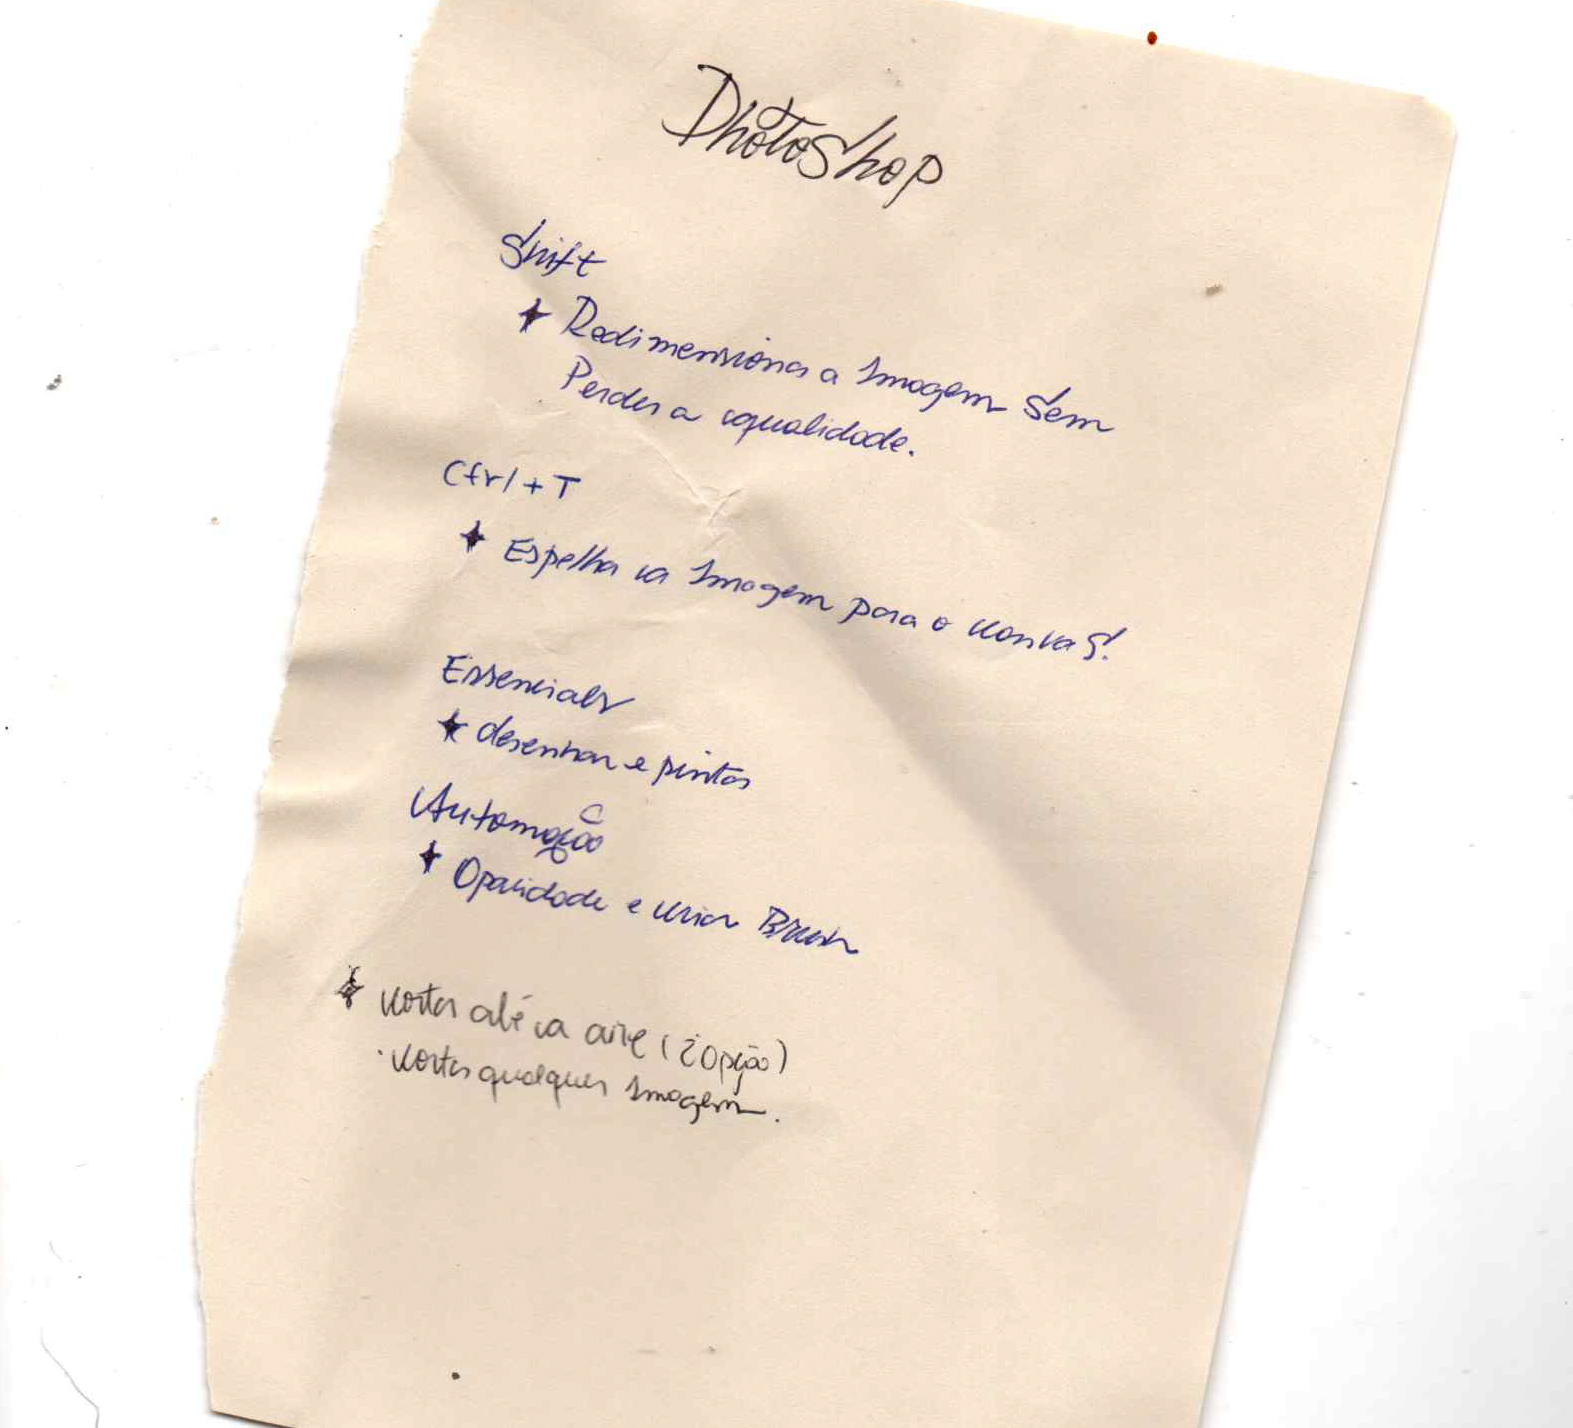 Photoshop
Shift
Redimensiona a Imagem Sem
Perder a qualidade.
Ctrl+T
Espelha a Imagem para o Canvas!
Essenciais
desenhar e pintar
Automação
Opacidade e criar Brush
Corta até a (2 opção)
Corta qualquer Imagem.